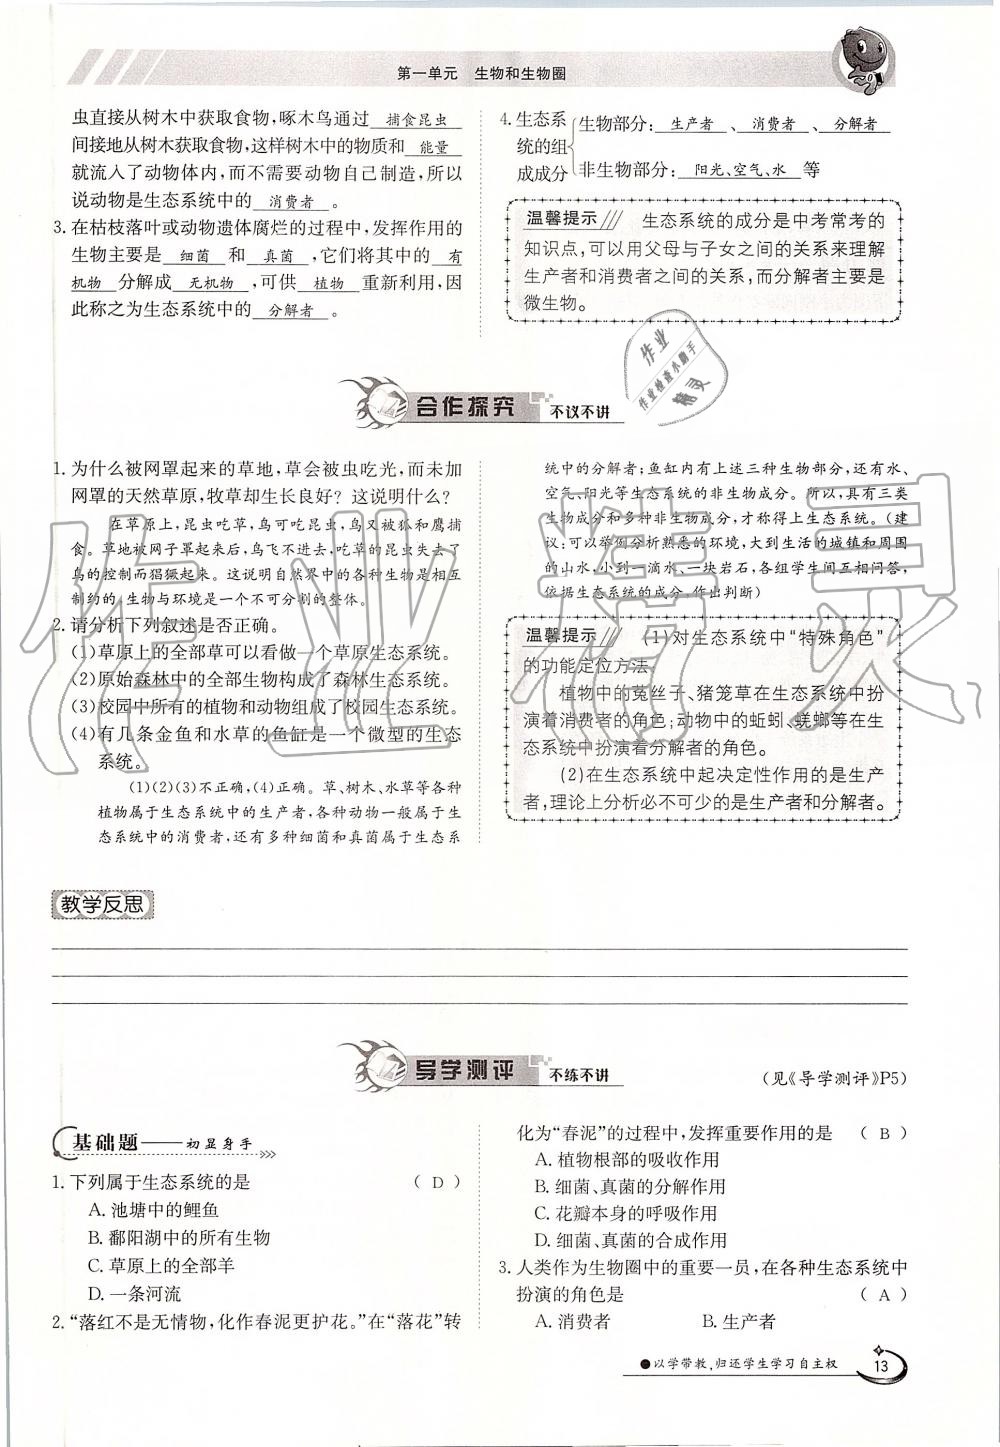 第一单元　生物和生物圈
虫直接从树木中获取食物,啄木鸟通过 捕食昆虫
间接地从树木获取食物,这样树木中的物质和 能量
就流入了动物体内,而不需要动物自己制造,所以
说动物是生态系统中的 消费者 。
3. 在枯枝落叶或动物遗体腐烂的过程中,发挥作用的
生物主要是 细菌 和 真菌 ,它们将其中的 有
机物 分解成 无机物 ,可供 植物 重新利用,因
此称之为生态系统中的 分解者 。
4. 生态系
统的组
成成分
生物部分: 生产者 、 消费者 、 分解者
非生物部分: 阳光、空气、水 等
温馨提示 生态系统的成分是中考常考的
知识点,可以用父母与子女之间的关系来理解
生产者和消费者之间的关系,而分解者主要是
微生物。
作业
作业检查小助手
精灵
合作探究 不议不讲
1. 为什么被网罩起来的草地,草会被虫吃光,而未加
网罩的天然草原,牧草却生长良好？这说明什么？
在草原上,昆虫吃草,鸟可吃昆虫,鸟又被狐和鹰捕
食。草地被网子罩起来后,鸟飞不进去,吃草的昆虫失去了
鸟的控制而猖獗起来。这说明自然界中的各种生物是相互
制约的,生物与环境是一个不可分割的整体。
2. 请分析下列叙述是否正确。
(1)草原上的全部草可以看做一个草原生态系统。
(2)原始森林中的全部生物构成了森林生态系统。
(3)校园中所有的植物和动物组成了校园生态系统。
(4)有几条金鱼和水草的鱼缸是一个微型的生态
系统。
(1)(2)(3)不正确,(4)正确。草、树木、水草等各种
植物属于生态系统中的生产者,各种动物一般属于生
态系统中的消费者,还有多种细菌和真菌属于生态系
统中的分解者;鱼缸内有上述三种生物部分,还有水、
空气、阳光等生态系统的非生物成分。所以,具有三类
生物成分和多种非生物成分,才称得上生态系统。(建
议:可以举例分析熟悉的环境,大到生活的城镇和周围
的山水,小到一滴水、一块岩石,各组学生间互相问答,
依据生态系统的成分,作出判断)
温馨提示 (1)对生态系统中“特殊角色”
的功能定位方法:
植物中的菟丝子、猪笼草在生态系统中扮
演着消费者的角色;动物中的蚯蚓、蜣螂等在生
态系统中扮演着分解者的角色。
(2)在生态系统中起决定性作用的是生产
者,理论上分析必不可少的是生产者和分解者。
作业精灵
教学反思
导学测评 不练不讲
(见《导学测评》P5)
基础题——初显身手
1. 下列属于生态系统的是 ( D )
A. 池塘中的鲤鱼
B. 鄱阳湖中的所有生物
C. 草原上的全部羊
D. 一条河流
2. “落红不是无情物,化作春泥更护花。”在“落花”转
化为“春泥”的过程中,发挥重要作用的是 ( B )
A. 植物根部的吸收作用
B. 细菌、真菌的分解作用
C. 花瓣本身的呼吸作用
D. 细菌、真菌的合成作用
3. 人类作为生物圈中的重要一员,在各种生态系统中
扮演的角色是 ( A )
A. 消费者 B. 生产者
●以学带教,归还学生学习自主权 13